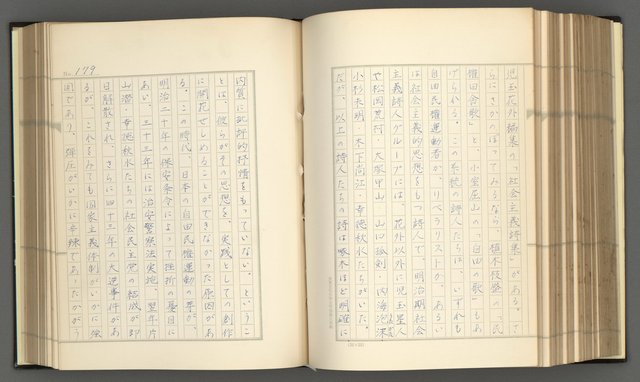 児玉花外編集の「社会主義詩集」がある。さ
らにさかのぼってみるなら、植木枝盛の「民
権田舎歌」と、小室屈山の「自由の歌」もあ
げられる。この系統の詩人たちは、いずれも
自由民権運動者か、リベラリストか、あるい
は社会主義的思想をもつ詩人で、明治期社会
主義詩人グループには、花外以外に児玉星人
や松岡荒村・大塚甲山・山口孤剣・内海泡沫
小杉未明・木下尚江・幸徳秋水たちがいた。
だが、以上の詩人たちの詩は啄木ほど明確に
No. 179
内質に批評的抒情をもっていない。というこ
とは、彼らがその思想を、実践としての創作
に開花せしめることができなかった原因があ
る。この時代、日本の自由民権運動の芽が、
明治二十年の保安条令によって挫折の憂目に
あい、三十三年には治安警察法実施、翌年片
山潜・幸徳秋水たちの社会民主党の結成が即
日解散され、さらに四十三年の大逆事件があ
るが、これをみても国家主義体制がいかに強
固であり、弾圧がいかに辛辣であったかがう